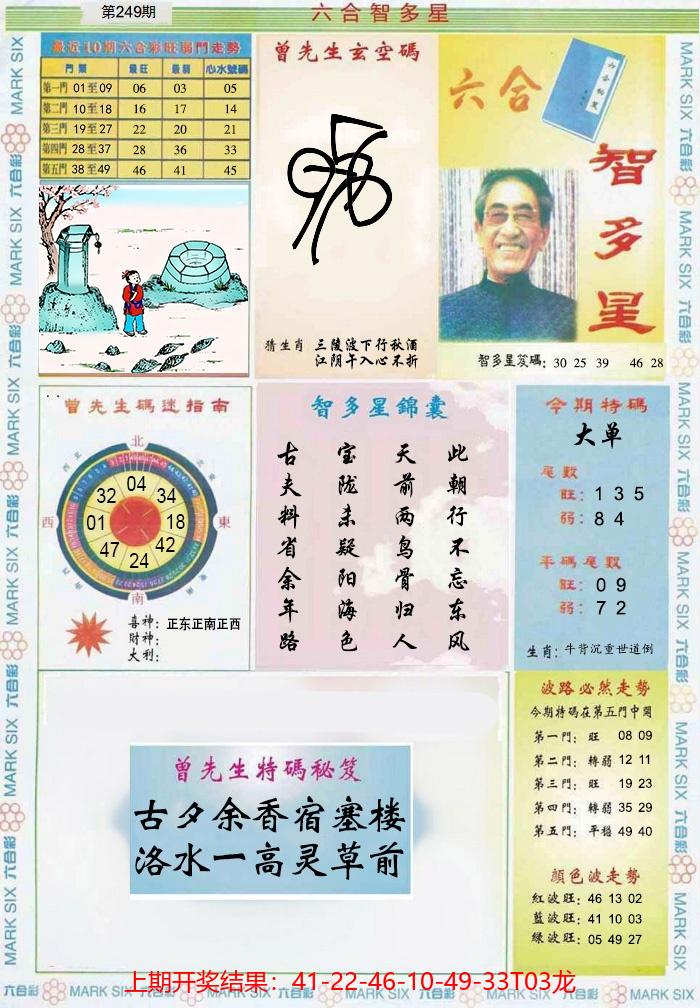 第249期
六合智多星
最近10期六合彩旺弱門走勢
門類 最旺 最弱 心水號碼
第一門 01至09 06 03 05
第二門 10至18 16 17 14
第三門 19至27 22 20 21
第四門 28至37 28 36 33
第五門 38至49 46 41 45
曾先生玄空碼
猜生肖 三陵波下行秋酒
江阴午入心不折
六合
智多星
智多星笈碼: 30 25 39 46 28
曾先生碼迷指南
北
西
東
南
04
34
18
42
24
47
01
32
喜神: 正东正南正西
財神:
大利:
智多星錦囊
此朝行不忘东风
天前两鸟骨归人
宝陇来疑阳海色
古夫料省余年路
今期特碼
大单
尾數
旺: 1 3 5
弱: 8 4
平碼尾數
旺: 0 9
弱: 7 2
生肖: 牛背沉重世道倒
曾先生特碼秘笈
古夕余香宿塞楼
洛水一高灵草前
波路必然走勢
今期特碼在第五門中開
第一門: 旺 08 09
第二門: 轉弱 12 11
第三門: 旺 19 23
第四門: 轉弱 35 29
第五門: 平穩 49 40
顏色波走勢
紅波旺: 46 13 02
藍波旺: 41 10 03
綠波旺: 05 49 27
MARK SIX 六合彩
上期开奖结果：41-22-46-10-49-33T03龙